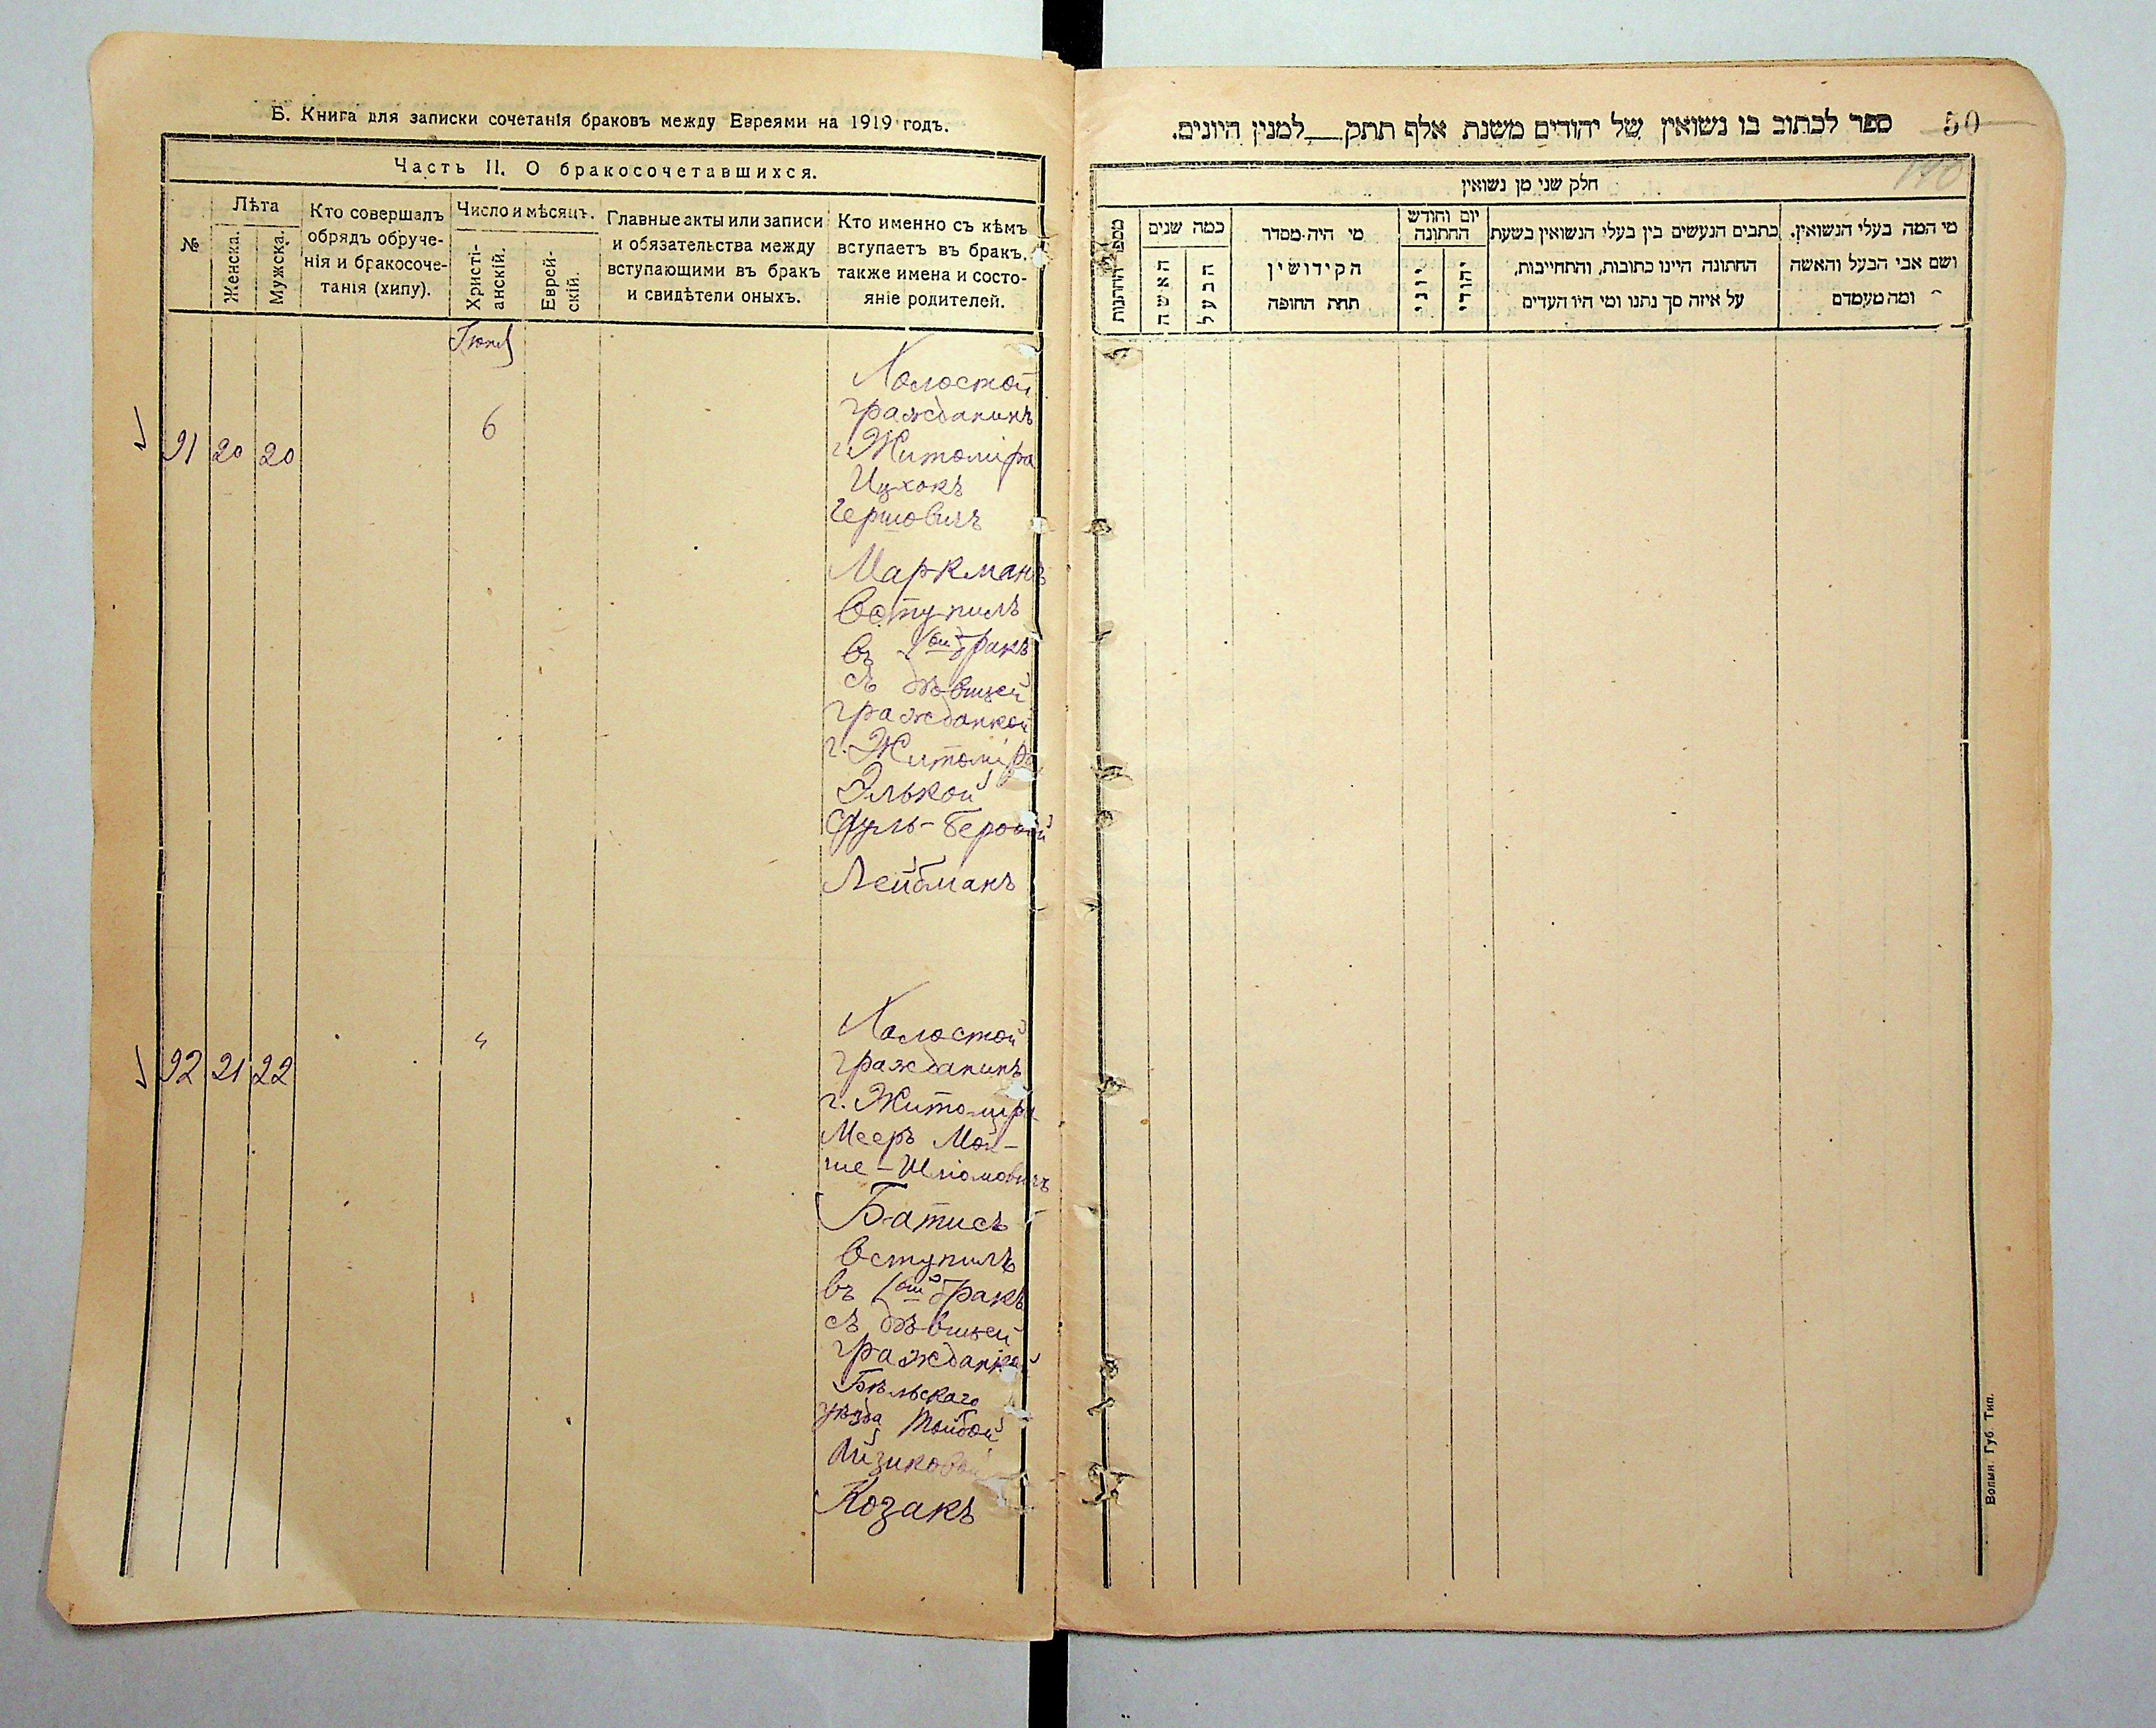 Б. Книга для записки сочетанія браковъ между Евреями на 1919 годъ.
Часть II. О бракосочетавшихся.
№
Лѣта
Женска.
Мужска.
Кто совершалъ
обрядъ обруче-
нія и бракосоче-
танія (хипу).
Число и мѣсяцъ.
Христі-
анскій.
Еврей-
скій.
Главные акты или записи
и обязательства между
вступающими въ бракъ
и свидѣтели оныхъ.
Кто именно съ кѣмъ
вступаетъ въ бракъ,
также имена и состо-
яніе родителей.
91 20 20
6
Холостой
гражданинъ
г. Житоміра
Ицхокъ
Гершовичъ
Маркманъ
вступилъ
въ 1ый бракъ
съ дѣвицей
гражданкой
г. Житоміра
Элькой
Сруль-Беровой
Лейбманъ
92 21 22
"
Холостой
гражданинъ
г. Житоміра
Мееръ Мой-
ше-Шломовичъ
Батисъ
вступилъ
въ 1ый бракъ
съ дѣвицей
гражданкой
Бѣльскаго
уѣзда Тойбой
Айзиковой
Козакъ
50
ספר לכתוב בו נשואין של יהודים משנת אלף תתק__למנין היונים.
חלק שני מן נשואין
מספר החתונות
כמה שנים
האשה
הבעל
מי היה מסדר
הקידושין
תחת החופה
יום וחודש
החתונה
יוני
יהודי
כתבים הנעשים בין בעלי הנשואין בשעת
החתונה היינו כתובות, והתחייבות,
על איזה סך נתנו ומי היו העדים
מי המה בעלי הנשואין.
ושם אבי הבעל והאשה
ומה מעמדם
Волын. Губ. Тип.